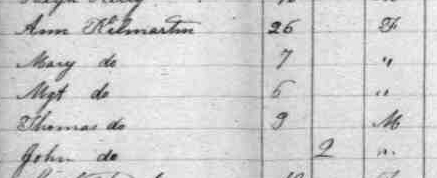 Ann Kilmartin 26 F
Mary do 7 "
Mgt do 6 "
Thomas do 9 M
John do 2 "